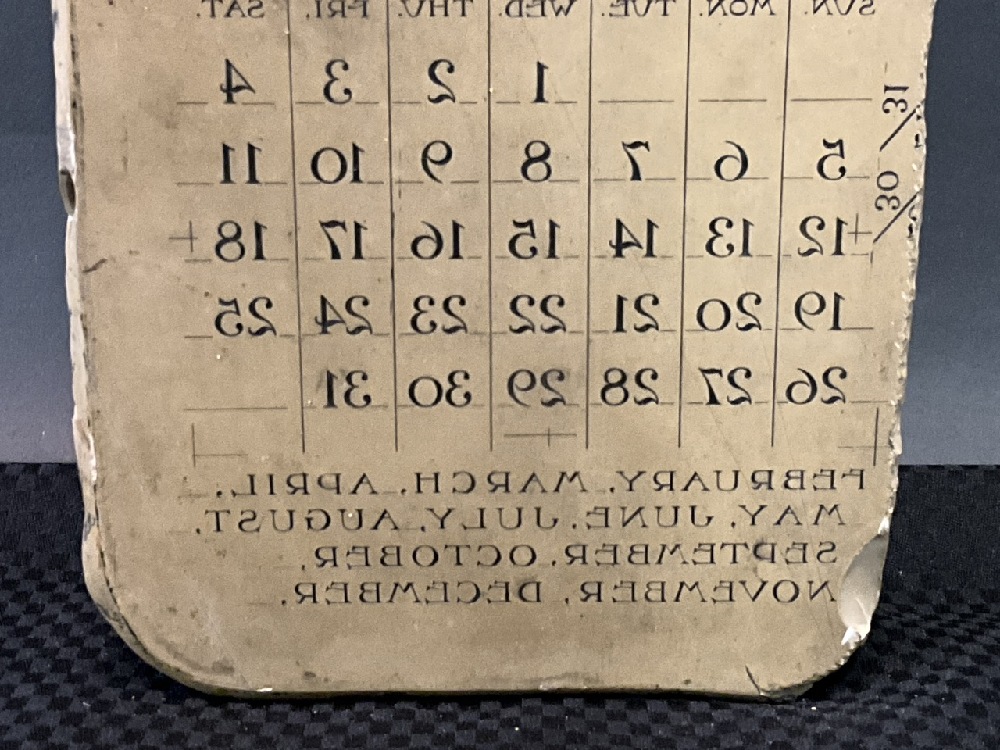 SUN. MON. TUE. WED. THU. FRI. SAT.
1 2 3 4
5 6 7 8 9 10 11
12 13 14 15 16 17 18
19 20 21 22 23 24 25
26 27 28 29 30 31
31
30
FEBRUARY, MARCH, APRIL,
MAY, JUNE, JULY, AUGUST,
SEPTEMBER, OCTOBER,
NOVEMBER, DECEMBER,